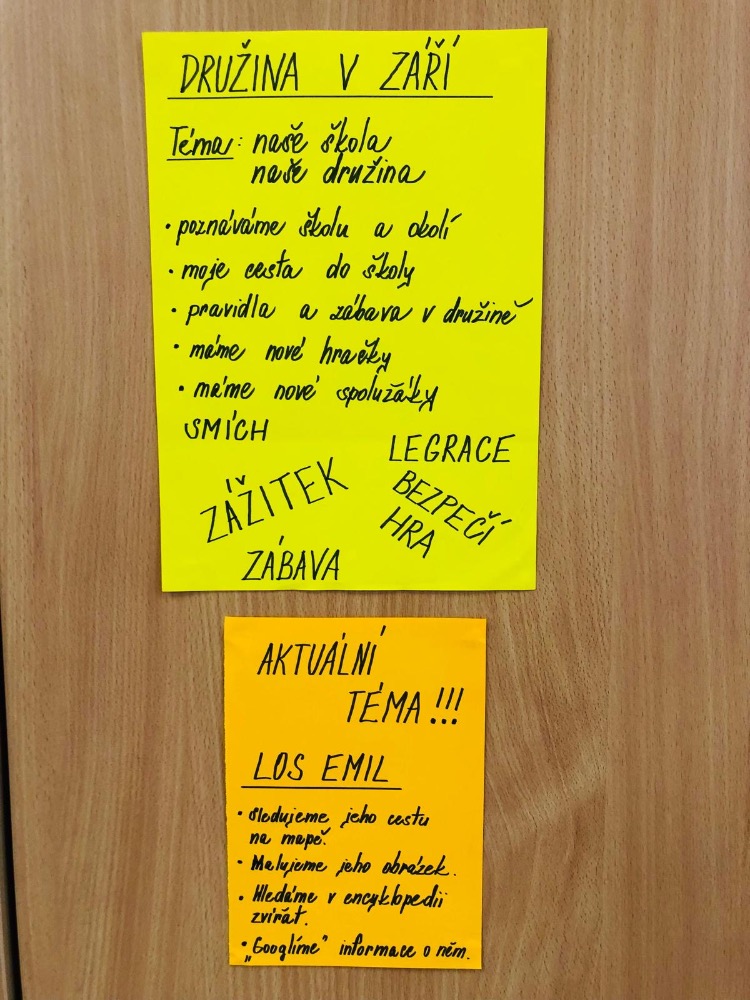 DRUŽINA V ZÁŘÍ
Téma: naše škola
naše družina
• poznáváme školu a okolí
• moje cesta do školy
• pravidla a zábava v družině
• máme nové hračky
• máme nové spolužáky
SMÍCH
LEGRACE
ZÁŽITEK
BEZPEČÍ
HRA
ZÁBAVA
AKTUÁLNÍ
TÉMA !!!
LOS EMIL
• Sledujeme jeho cestu
na mapě.
• Malujeme jeho obrázek.
• Hledáme v encyklopedii
zvířat.
• „Googlíme" informace o něm.